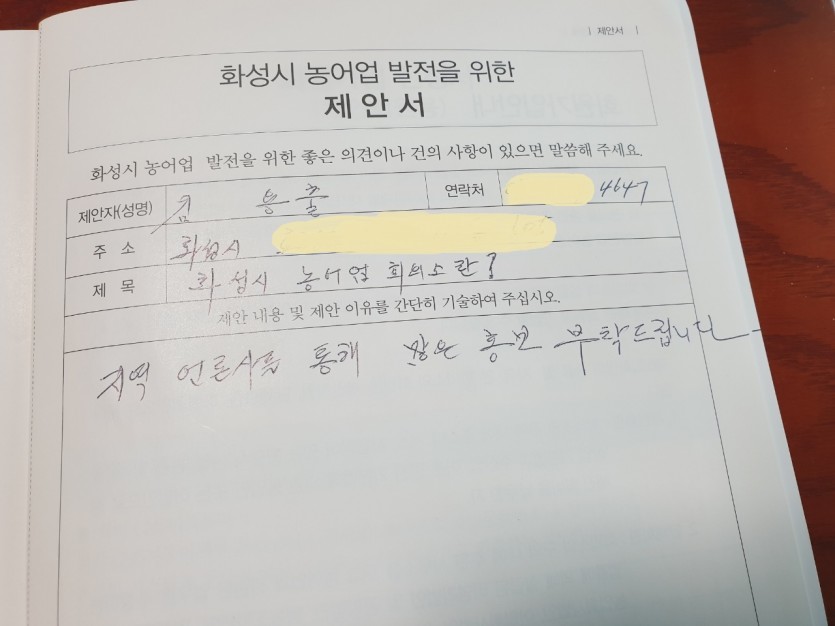 | 제안서 |
화성시 농어업 발전을 위한
제 안 서
화성시 농어업 발전을 위한 좋은 의견이나 건의 사항이 있으면 말씀해 주세요.
제안자(성명) 김 용 출 연락처 4647
주 소 화성시
제 목 화성시 농어업 회의소란?
제안 내용 및 제안 이유를 간단히 기술하여 주십시오.
지역 언론사를 통해 많은 홍보 부탁드립니다